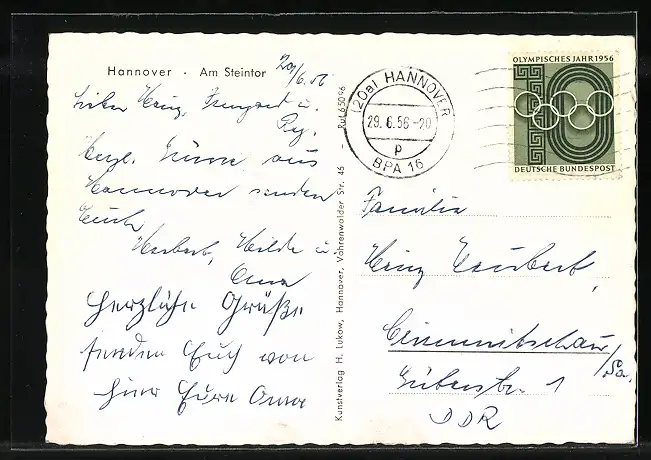 Hannover · Am Steintor
29/6.56
Lieber Heinz, Irmgard u.
Herzl. Grüße aus
Hannover senden
Euch
Herbert, Hilde u.
Oma
Herzliche Grüße
senden Euch von
hier Eure Oma
Kunstverlag H. Lukow, Hannover, Vahrenwalder Str. 46 - Ruf 65096
(20a) HANNOVER
29.6.56-20
p
BPA 16
OLYMPISCHES JAHR 1956
DEUTSCHE BUNDESPOST
Familie
Heinz
Crimmitschau/Sa.
1
DDR